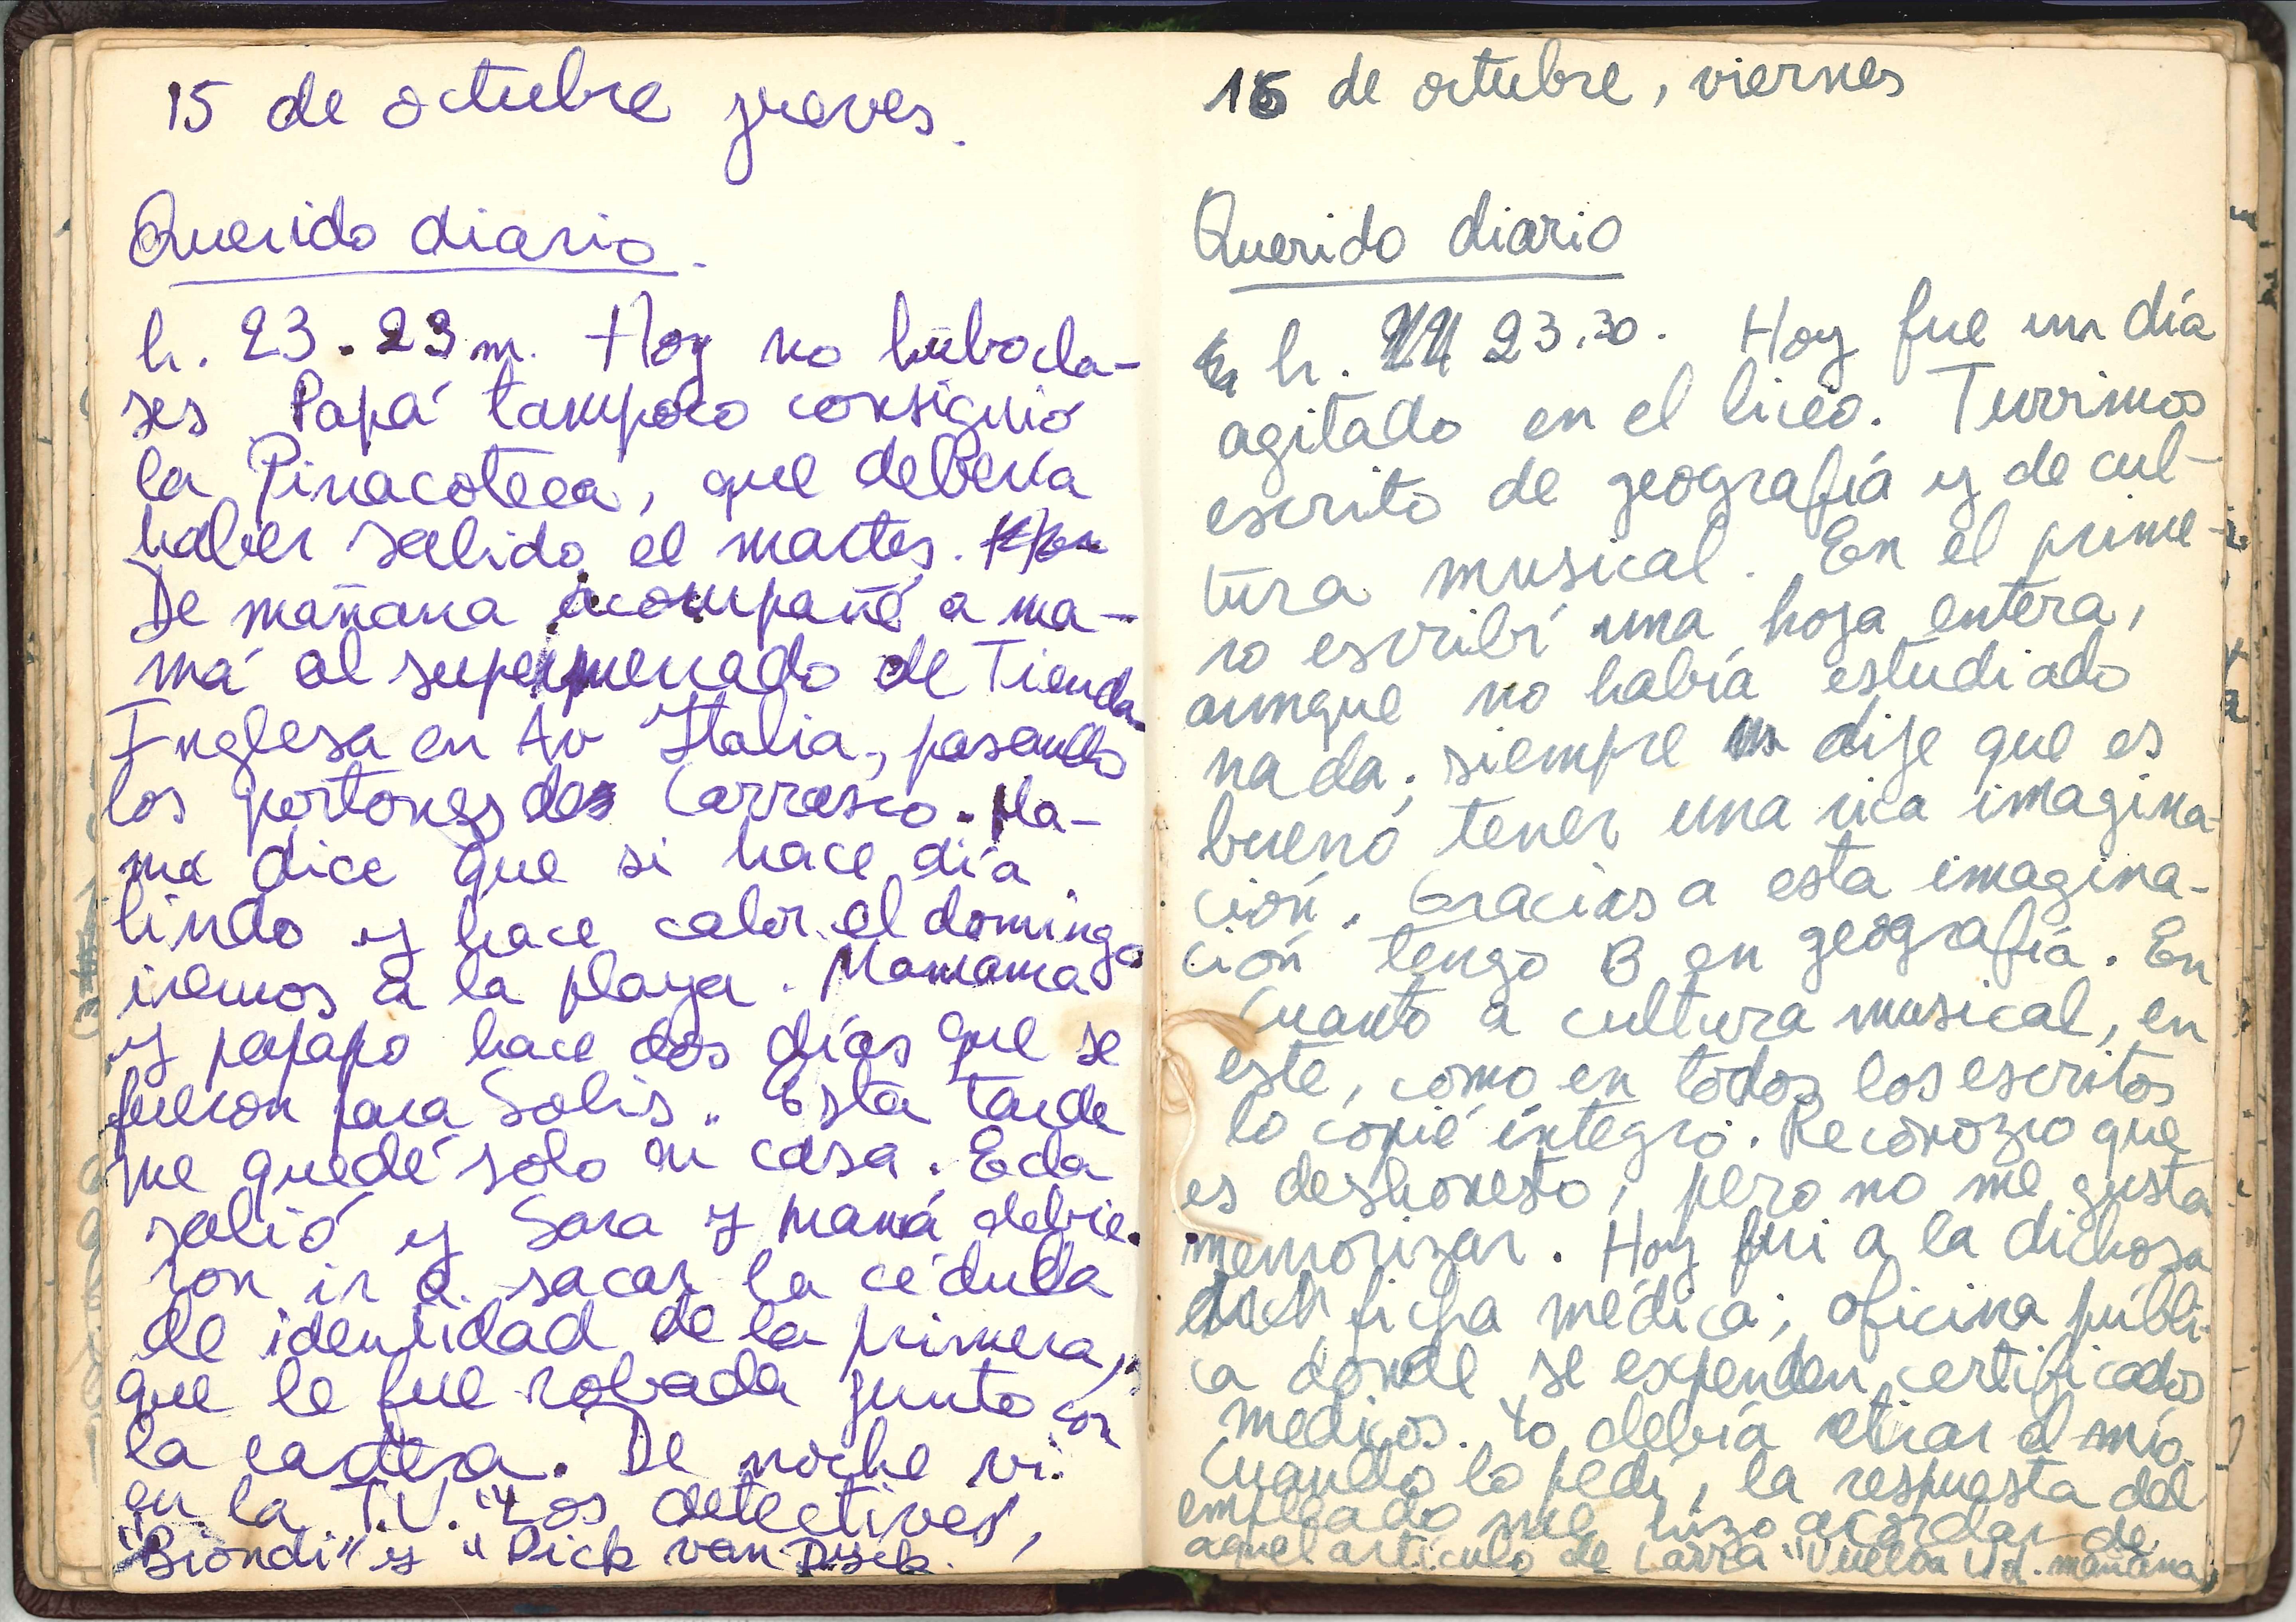 15 de octubre jueves.
Querido diario.
h. 23.23 m. Hoy no hubo cla-
ses Papá tampoco consiguió
la Pinacoteca, que debería
haber salido el martes.
De mañana acompañé a ma-
má al supermercado de Tienda
Inglesa en Av Italia, pasando
los portones de Carrasco. Ma-
má dice que si hace día
lindo y hace calor el domingo
iremos a la playa. Mamama
y papapo hace dos días que se
fueron para Solís. Esta tarde
me quedé solo en casa. Eda
salió y Sara y mamá debie-
ron ir a sacar la cédula
de identidad de la primera,
que le fue robada junto con
la cartera. De noche vi
en la T.V. "Los detectives",
"Biondi" y "Dick van Dyck.
16 de octubre, viernes
Querido diario
h. 23.30. Hoy fue un día
agitado en el liceo. Tuvimos
escrito de geografía y de cul-
tura musical. En el prime-
ro escribí una hoja entera,
aunque no había estudiado
nada; siempre dije que es
bueno tener una rica imagina-
ción. Gracias a esta imagina-
ción tengo B en geografía. En
cuanto a cultura musical, en
este, como en todos los escritos
lo copié íntegro. Reconozco que
es deshonesto, pero no me gusta
memorizar. Hoy fui a la dichosa
ficha médica; oficina públi-
ca donde se expenden certificados
médicos. Yo debía retirar el mío.
Cuando lo pedí, la respuesta del
empleado me hizo acordar de
aquel artículo de Larra "Vuelva Ud. mañana"